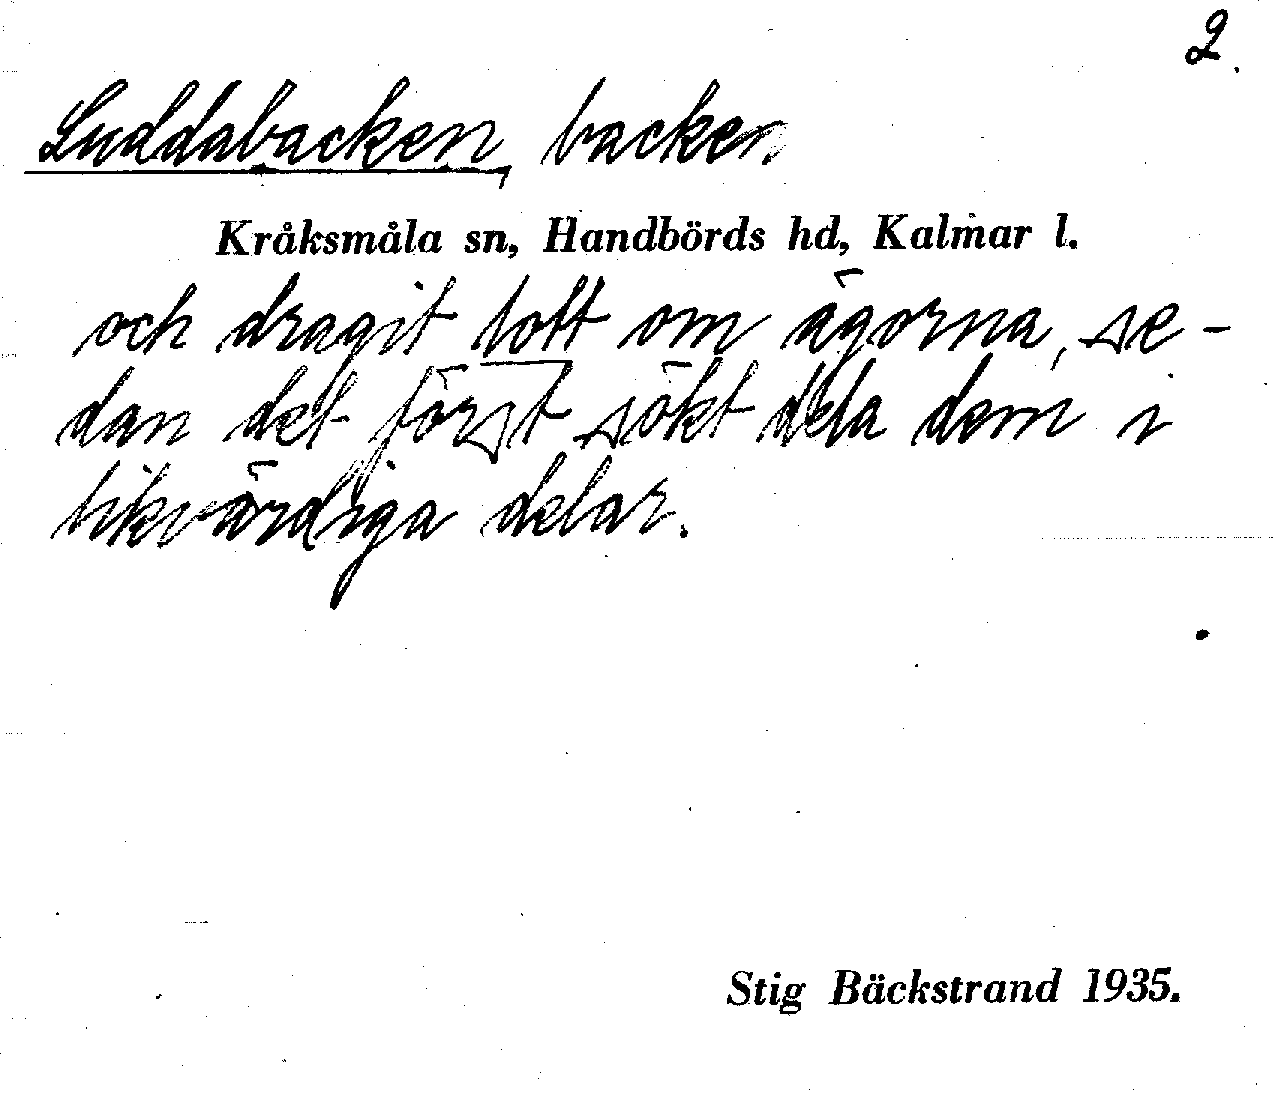 2.
Luddabacken, backen
Kråksmåla sn, Handbörds hd, Kalmar l.
och dragit lott om ägorna, se-
dan det först sökt dela dem i
likvärdiga delar.
Stig Bäckstrand 1935.